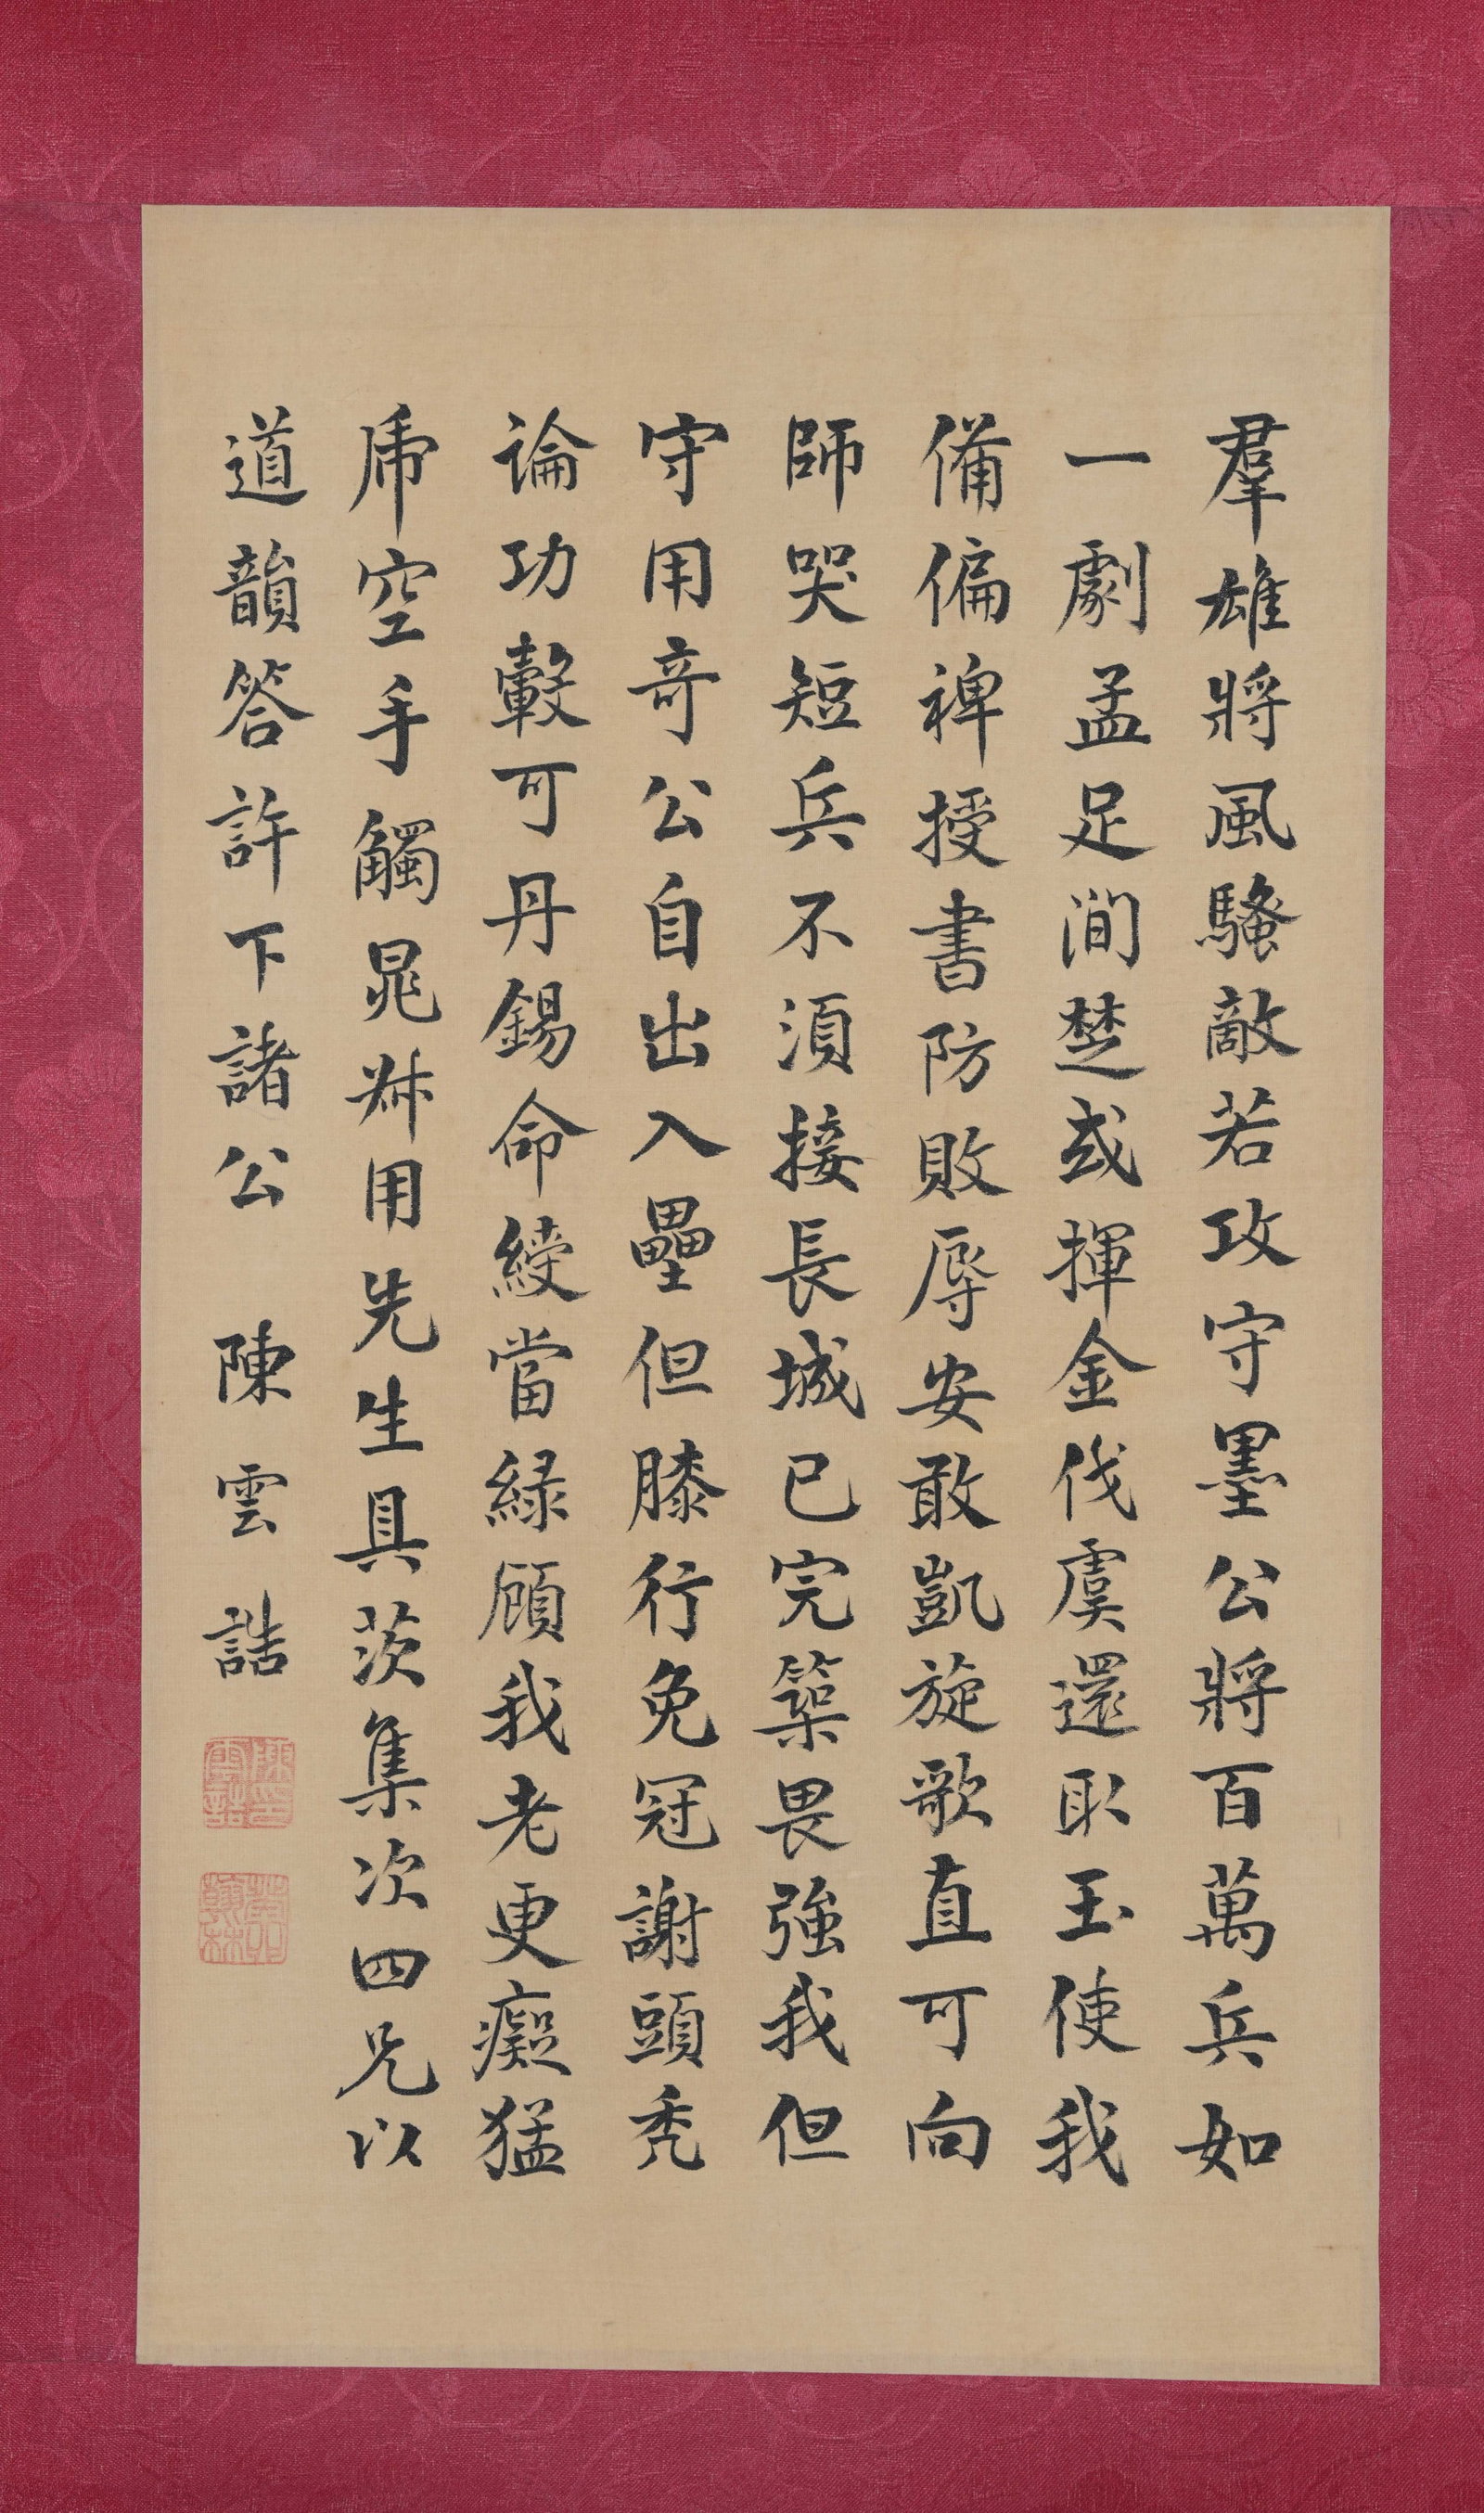 羣雄將風騷敵若攻守墨公將百萬兵如
一劇孟足澗楚或揮金伐虞還取玉使我
備偏裨授書防敗辱安敢凱旋歌直可向
師哭短兵不須接長城已完築畏強我但
守用奇公自出入壘但膝行免冠謝頭禿
論功轂可丹錫命綬當綠願我老更癡猛
虎空手觸晁叔用先生具茨集次四兄以
道韻答許下諸公 陳雲誥
陳雲誥印